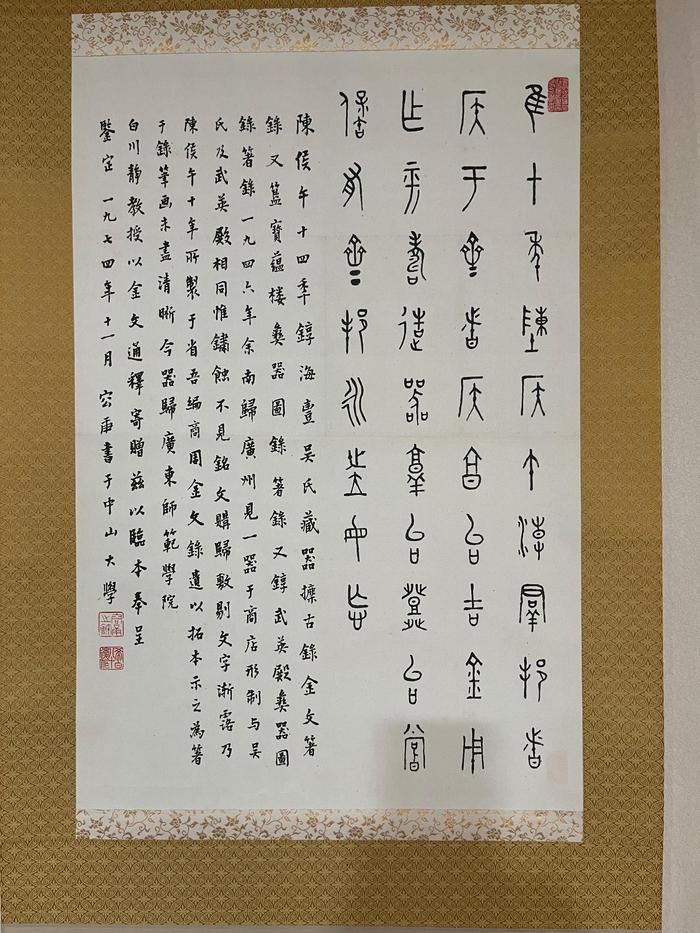 隹十年塦侯午淖羣邦者
侯于齊者侯享台吉金用
乍平壽造器敦台登台嘗
保有齊邦永世毋忘
陳侯午十四年錞海豐吳氏藏器攈古錄金文箸
錄又簠寶蘊樓彝器圖錄箸錄又錞武英殿彝器圖
錄箸錄一九四六年余南歸廣州見一器于商店形制與吳
氏及武英殿相同惟鏽蝕不見銘文購歸敷剔文字漸露乃
陳侯午十年所製于省吾編商周金文錄遺以拓本示之為箸
于錄筆画未盡清晰今器歸廣東師範學院
白川靜教授以金文通釋寄贈茲以臨本奉呈
鑒定 一九七四年十一月 容庚書于中山大學